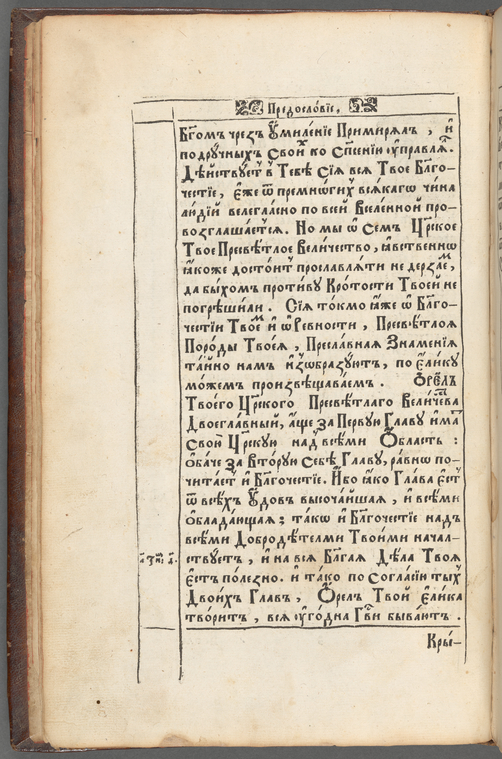 Предосло́вїе.
Бг҃омъ чрезъ Ѹ҆миле́нїе Примиря́лъ , и҆
подру́чныхъ Свои́х ко Сп҃се́нїи ѹ҆правлѧ́л.
Дѣ́йствꙋетъ в Тебѣ̀ Сїѧ̀ всѧ̀ Твоѐ Бл҃го-
че́стїе, є҆́же ѿ премно́гихъ всѧ́кагѡ чи́на
лю́дїй велегла́сно по всей Вселе́нной про-
возглаша́етсѧ. Но мы ѡ҆ Семъ Ца́рское
Твоѐ Пресвѣ́тлое Вели́чество, ꙗ҆́вственнѡ
ꙗ҆́коже досто́итъ прославлѧ́ти не дерза́ем,
да бы́хомъ проти́вꙋ Кро́тости Твое́й не
погрѣши́ли . Сїѧ̀ то́кмо ꙗ҆́же ѡ҆ Бл҃го-
че́стїи Твое́м и҆ ѡ҆ Ре́вности , Пресвѣ́тлоѧ
Поро́ды Твоеѧ̀ , Пресла́внаѧ Зна́менїѧ
та́йно намъ и҆з̾ѡбразꙋ́ютъ, по є҆ли́кꙋ
мо́жемъ произвѣщава́ем . Ѻ҆ре́лъ
Твоегѡ̀ Ца́рского Пресвѣ́тлаго Вели́чества
Двоегла́вный, а҆́ще за Пе́рвꙋю Главꙋ̀ и҆́мать
Свою̀ Ца́рскꙋю над всѣ́ми Ѻ҆́бласть :
ѻ҆ба́че за Втору́ю Себѣ̀ Главꙋ̀, ра́внѡ по-
чита́ет и҆ Бл҃гоче́стїе. И҆́бо ꙗ҆́ко Глава̀ є҆́сть
ѿ всѣ́хъ Ѹ҆́довъ высоча́йшаѧ , и҆ всѣ́ми
ѻ҆блада́ющаѧ ; та́кѡ и҆ Бл҃гоче́стїе надъ
всѣ́ми Добродѣ́телми Твои́ми нача́л-
ствꙋетъ , и҆ на всѧ̀ Бл҃га́ѧ Дѣ́ла Твоѧ̀
є҆́стъ поле́зно. и҆ та́ко по Согла́сїи тыхъ
Двои́хъ Главъ , Ѻ҆ре́лъ Твой є҆ли́ка
твори́тъ , всѧ̀ ѹ҆го́дна Гд҇ви быва́ютъ .
Кры́-